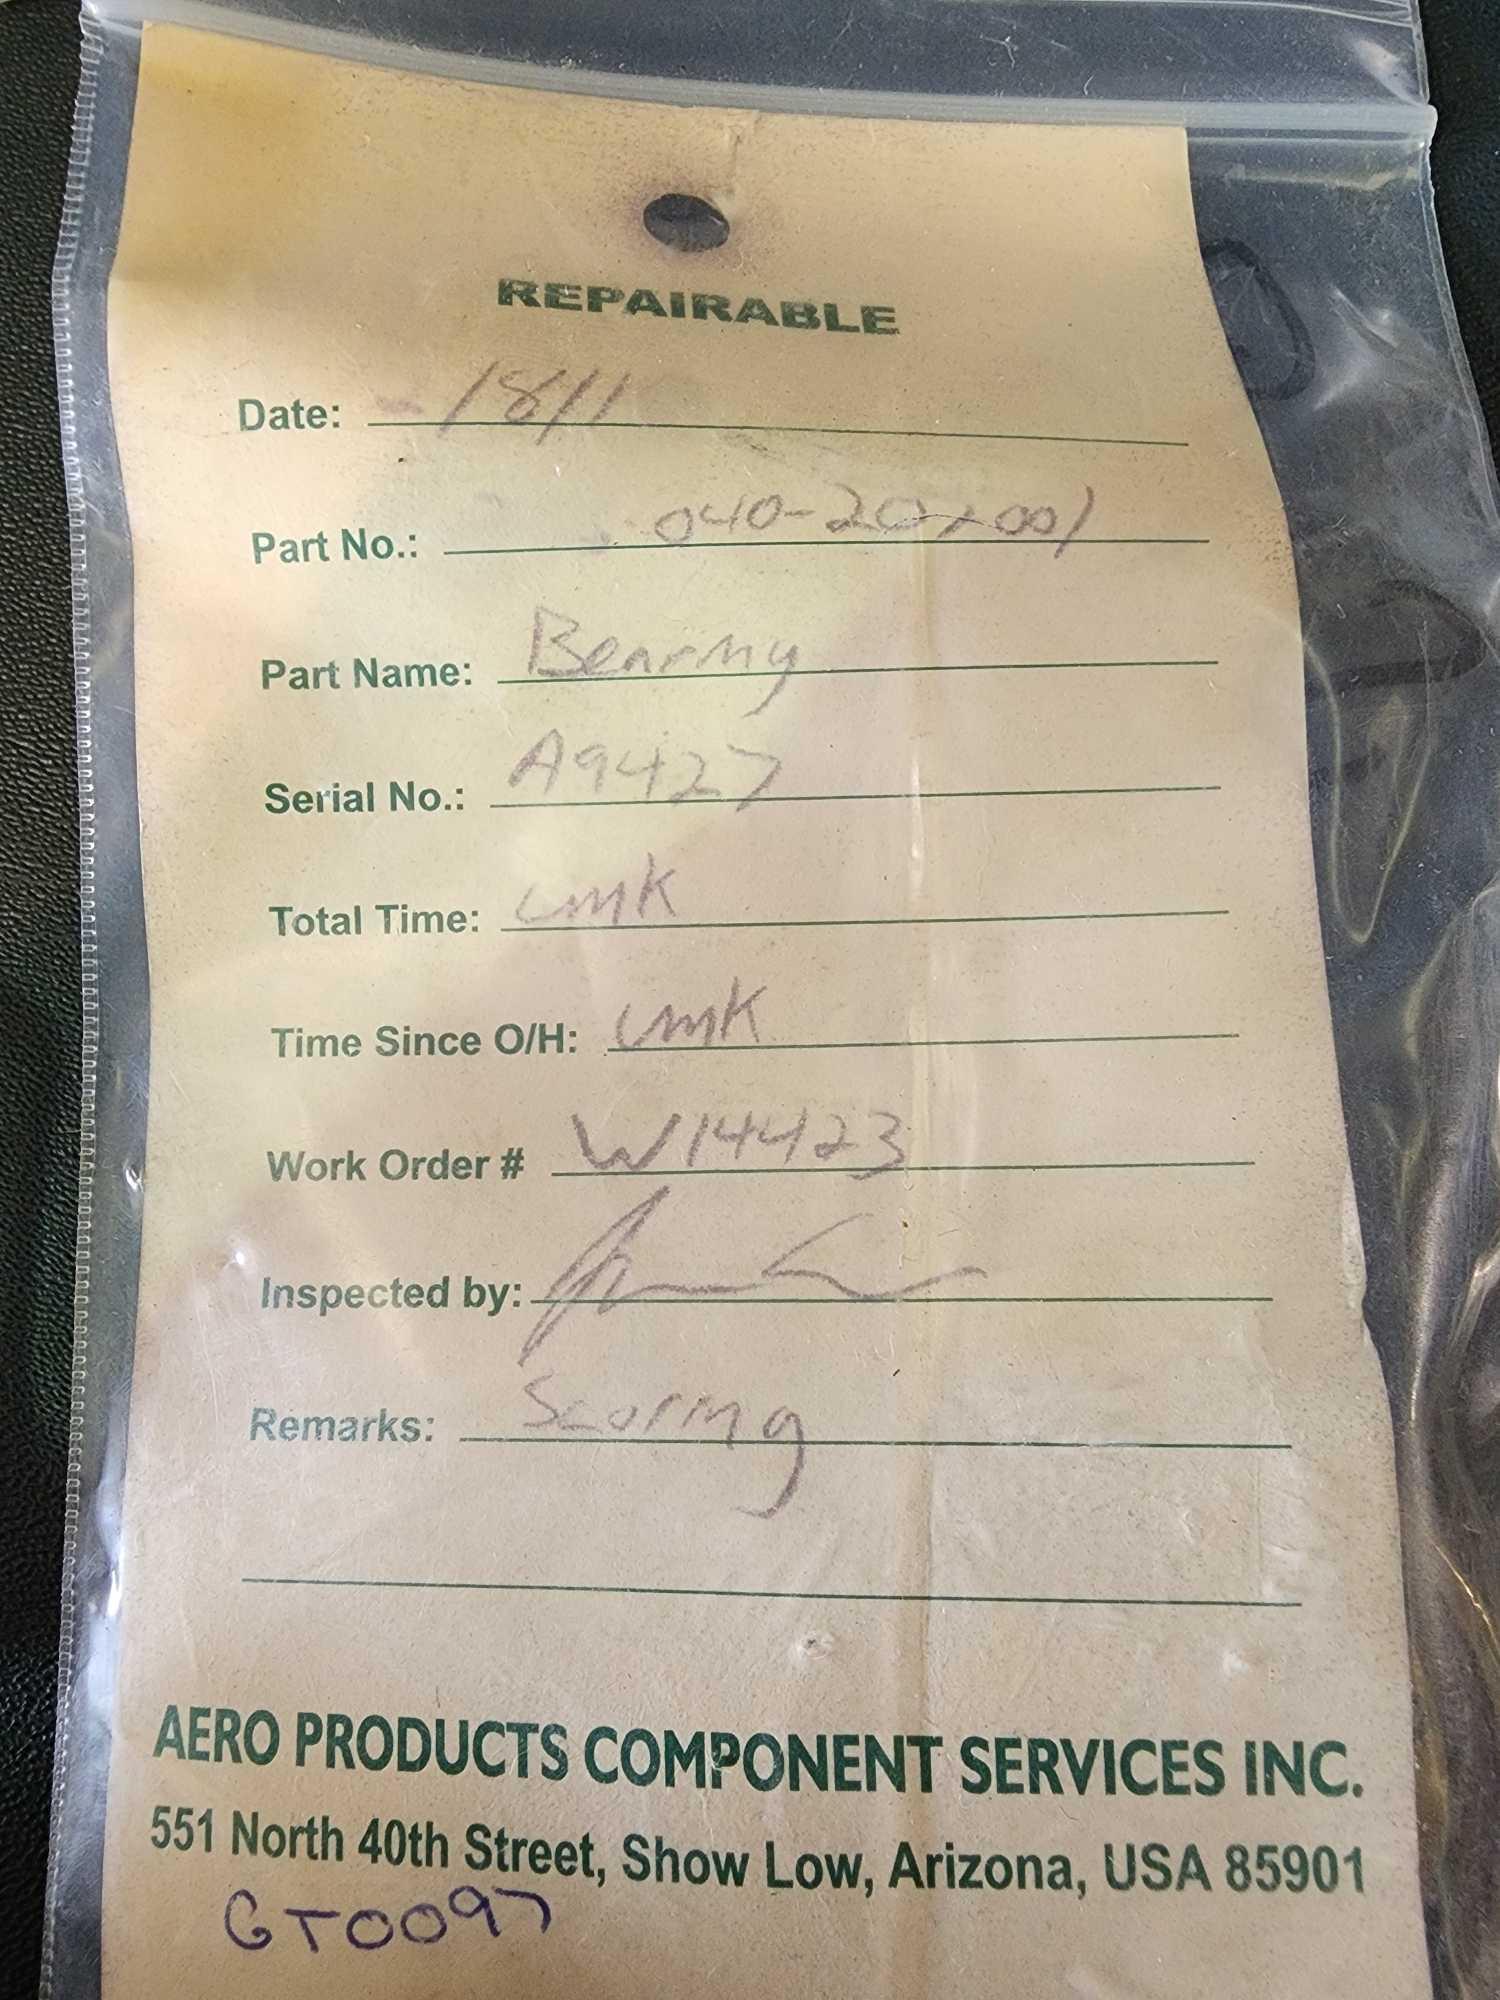 REPAIRABLE
Date: 1811
Part No.: 040-201001
Part Name: Bearing
Serial No.: A9427
Total Time: unk
Time Since O/H: unk
Work Order # W14423
Inspected by:
Remarks: Scoring
AERO PRODUCTS COMPONENT SERVICES INC.
551 North 40th Street, Show Low, Arizona, USA 85901
GT0097